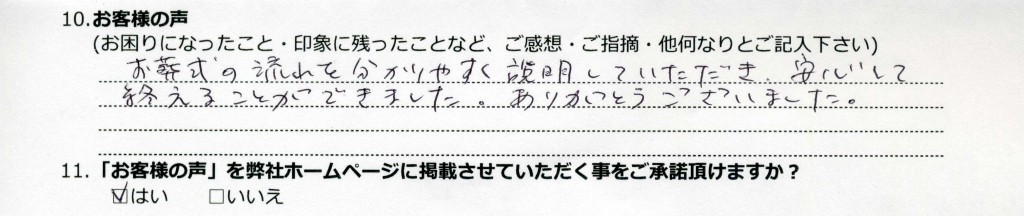 10.お客様の声
(お困りになったこと・印象に残ったことなど、ご感想・ご指摘・他何なりとご記入下さい)
お葬式の流れを分かりやすく説明していただき、安心して
終えることができました。ありがとうございました。
11.「お客様の声」を弊社ホームページに掲載させていただく事をご承諾頂けますか？
☑はい　□いいえ